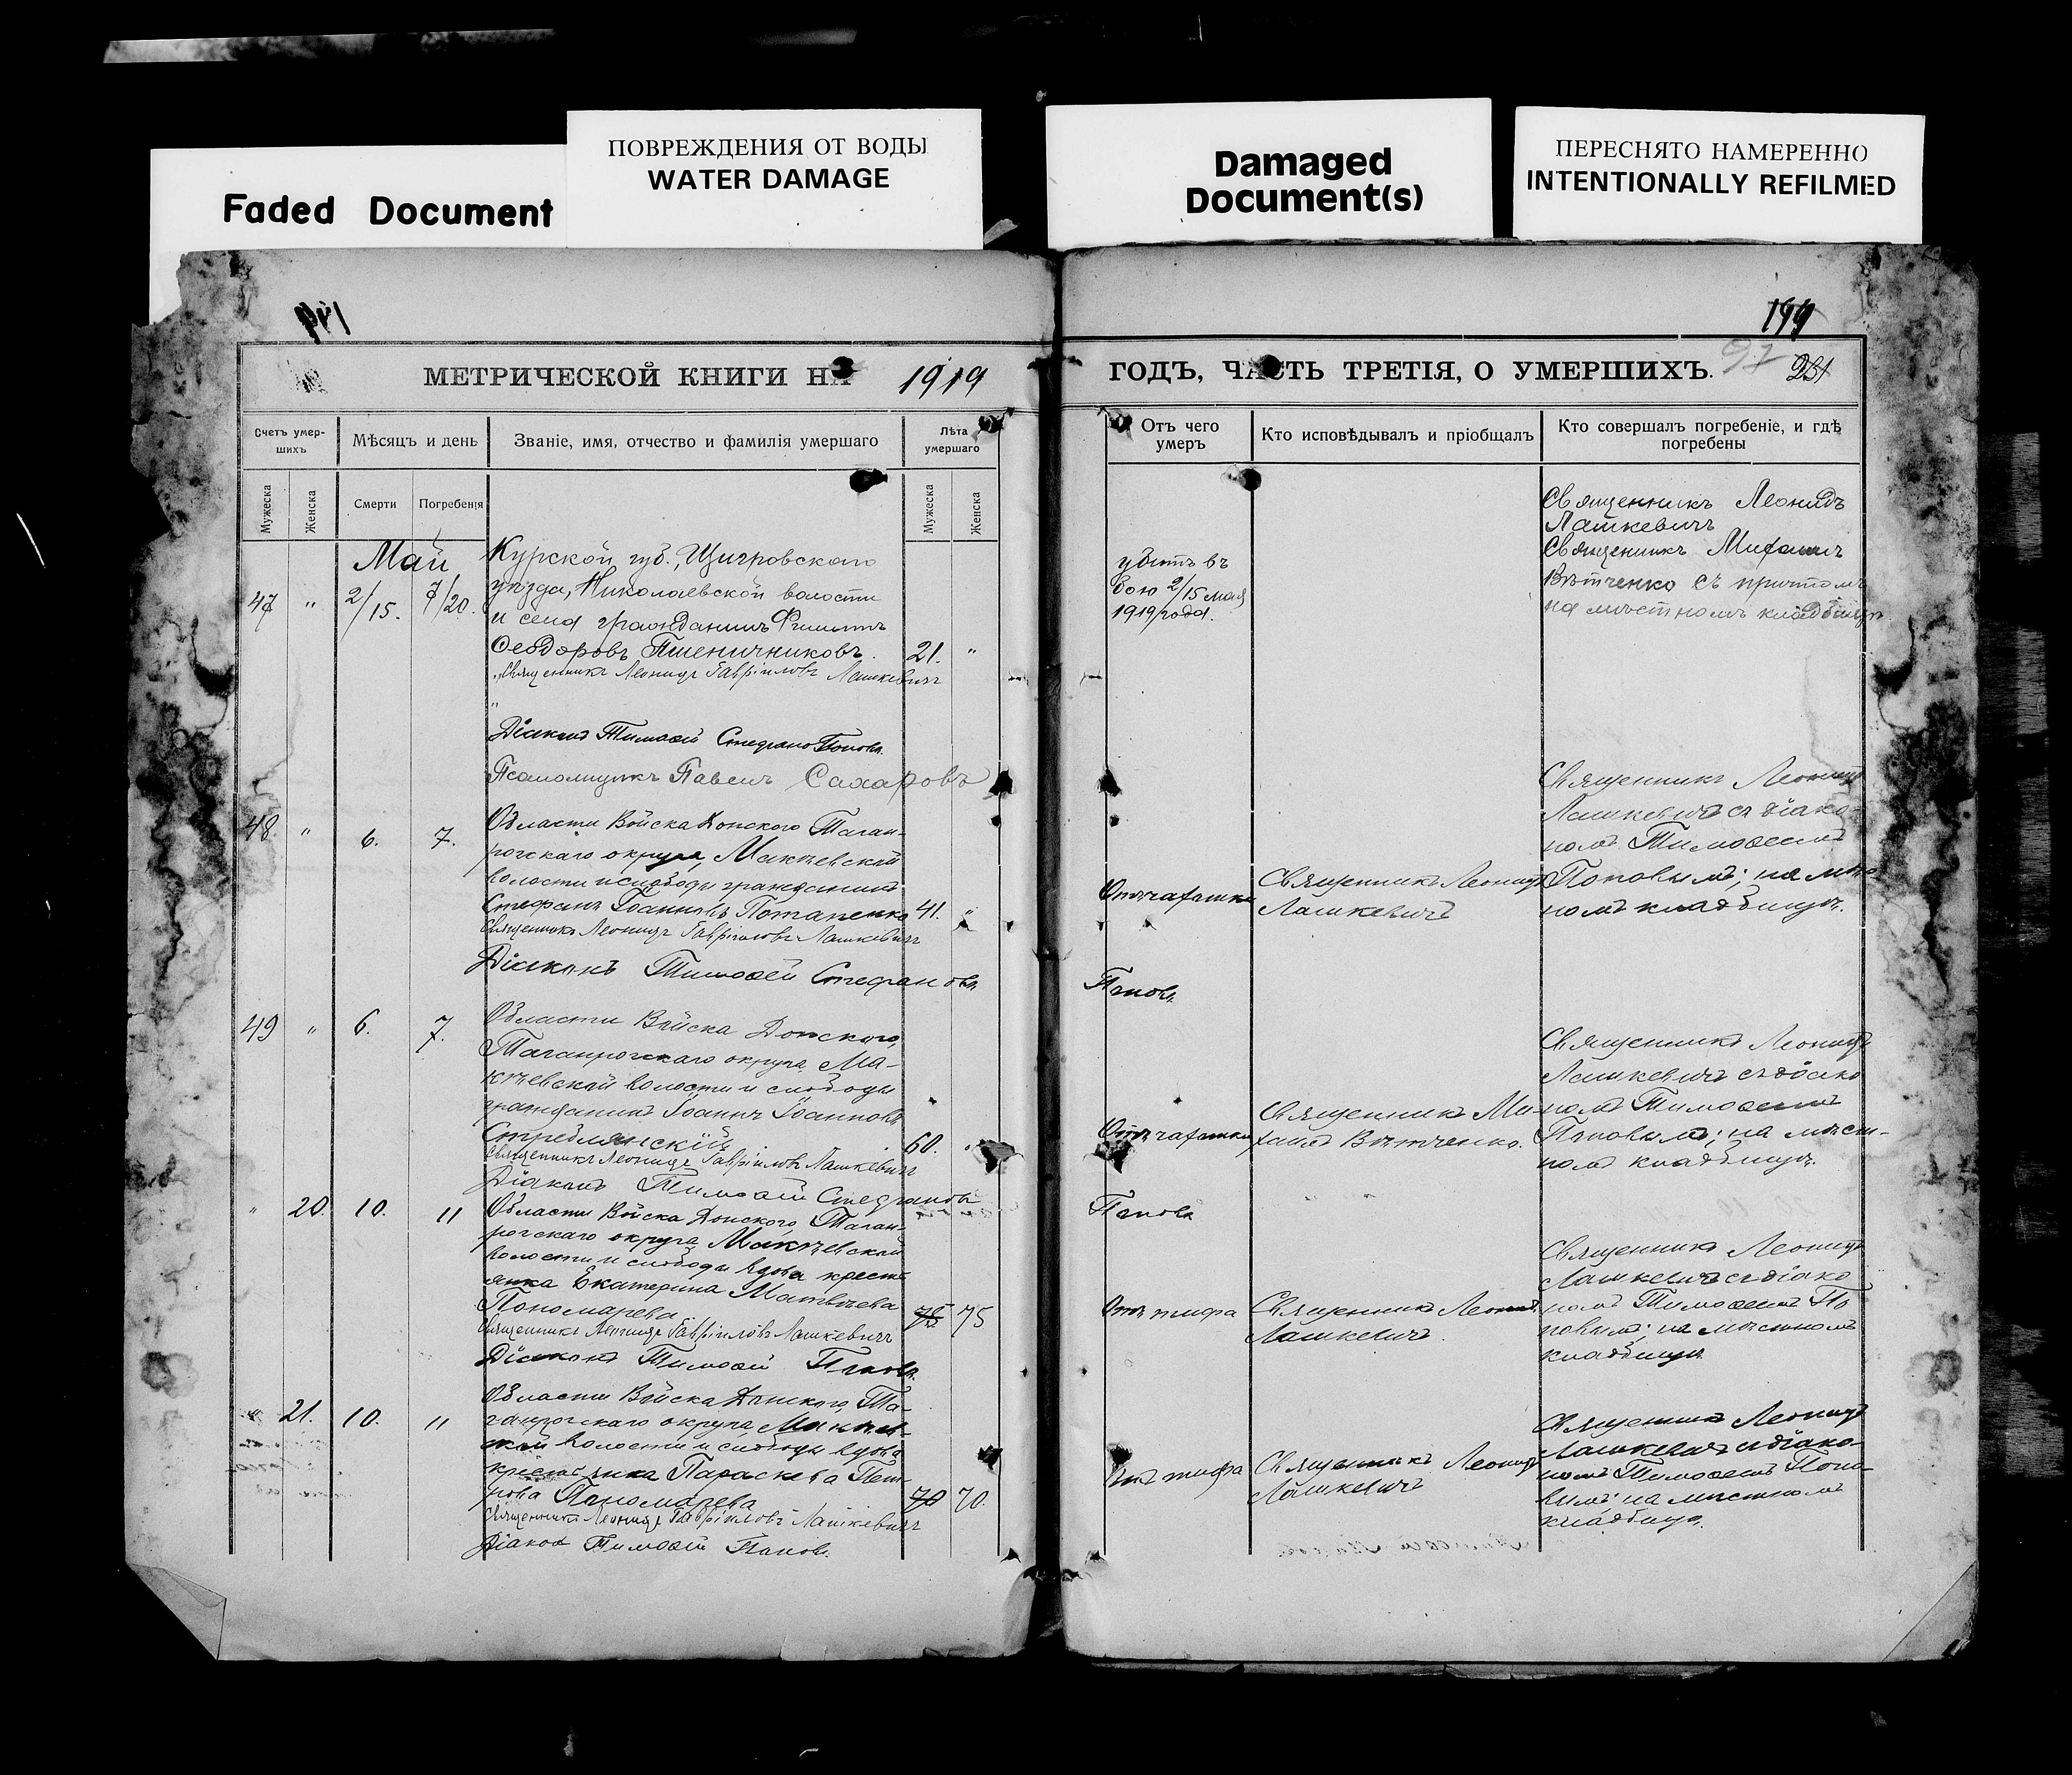 Faded Document
ПОВРЕЖДЕНИЯ ОТ ВОДЫ
WATER DAMAGE
Damaged
Document(s)
ПЕРЕСНЯТО НАМЕРЕННО
INTENTIONALLY REFILMED
МЕТРИЧЕСКОЙ КНИГИ НА 1919
Счетъ умер-
шихъ
Мѣсяцъ и день
Званіе, имя, отчество и фамилія умершаго
Лѣта
умершаго
Мужеска
Женска
Смерти
Погребенія
Мужеска
Женска
Май
47 " 2/15. 7/20.
Курской губ., Щигровскаго
уѣзда, Николаевской волости
и села гражданинъ Филиппъ
Ѳеодоровъ Пшеничниковъ. 21. "
Священникъ Леонидъ Гавріиловъ Лашкевичъ
Діаконъ Тимоѳей Стефано Поповъ.
Псаломщикъ Павелъ Сахаровъ
48 " 6. 7.
Области Войска Донского Таган-
рогскаго округа, Макѣевской
волости и слободы гражданинъ
Стефанъ Іоанновъ Потапенко 41. "
Священникъ Леонидъ Гавріиловъ Лашкевичъ
Діаконъ Тимоѳей Стефановъ
49 " 6. 7.
Области Войска Донского,
Таганрогскаго округа Ма-
кѣевской волости и слободы
гражданинъ Іоаннъ Іоанновъ
Стреблянскій 60. "
Священникъ Леонидъ Гавріиловъ Лашкевичъ
Діаконъ Тимоѳей Стефановъ
" 20. 10. 11
Области Войска Донского, Таган-
рогскаго округа Макѣевской
волости и слободы вдова кресть
янка Екатерина Матвѣева
Пономарева 75 75
Священникъ Леонидъ Гавріиловъ Лашкевичъ
Діаконъ Тимоѳей Поповъ.
" 21. 10. 11
Области Войска Донского, Та-
ганрогскаго округа Макѣев-
ской волости и слободы вдова
крестьянка Параскева Пет-
рова Пономарева 70 70.
Священникъ Леонидъ Гавріиловъ Лашкевичъ
Діакон Тимоѳей Поповъ.
199
ГОДЪ, ЧАСТЬ ТРЕТІЯ, О УМЕРШИХЪ.
Отъ чего
умеръ
Кто исповѣдывалъ и пріобщалъ
Кто совершалъ погребеніе, и гдѣ
погребены
убитъ въ
бою 2/15 мая
1919 года.
Священникъ Леонидъ
Лашкевичъ
Священникъ Михаилъ
Вѣтченко съ причтомъ
на мѣстномъ кладбищѣ.
Отъ чахотки
Священникъ Леонидъ
Лашкевичъ
Священникъ Леонидъ
Лашкевичъ съ діако-
номъ Тимоѳеемъ
Поповымъ; на мѣст
номъ кладбищѣ.
Поповъ.
Отъ чахотки
Священникъ Ми-
хаилъ Вѣтченко.
Священникъ Леонидъ
Лашкевичъ съ діако
номъ Тимоѳеемъ
Поповымъ; на мѣст-
номъ кладбищѣ.
Поповъ
Отъ тифа
Священникъ Леонидъ
Лашкевичъ.
Священникъ Леонидъ
Лашкевичъ съ діако
номъ Тимоѳеемъ По
повымъ; на мѣстномъ
кладбищѣ.
Отъ тифа
Священникъ Леонидъ
Лашкевичъ
Священникъ Леонидъ
Лашкевичъ съ діако-
номъ Тимоѳеемъ Попо-
вымъ; на мѣстномъ
кладбищѣ.